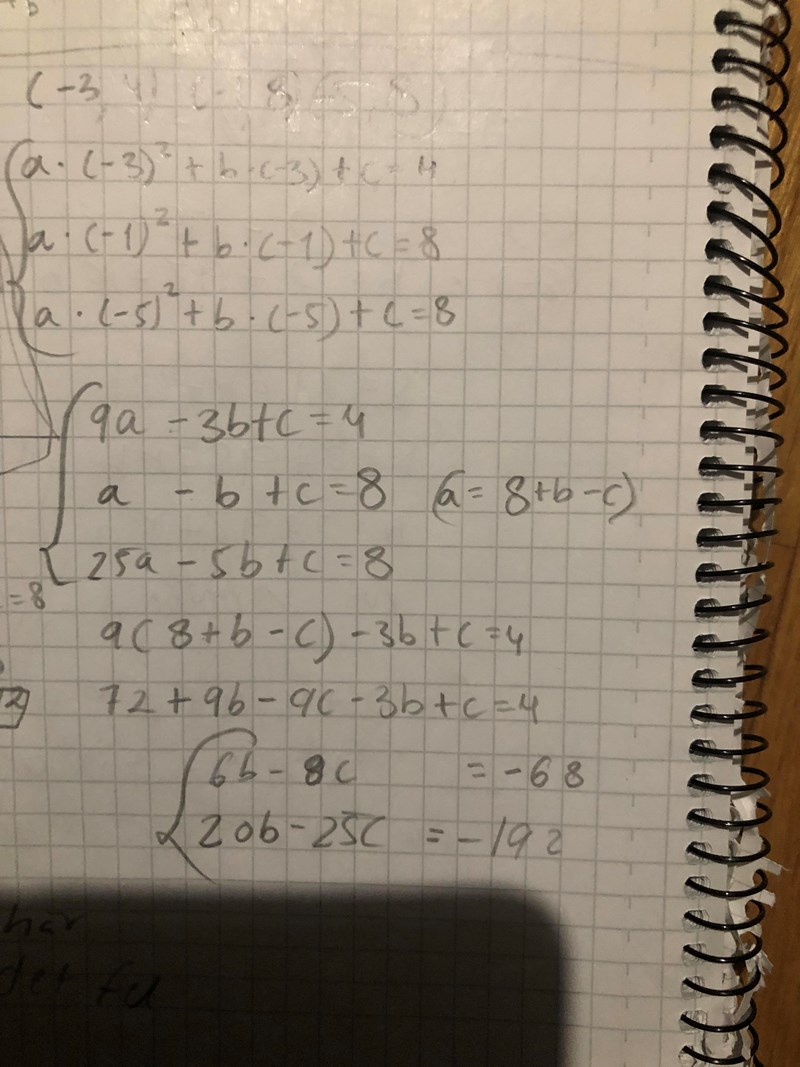 (-3, 4) (-1, 8) (-5, 8)
a · (-3)² + b · (-3) + c = 4
a · (-1)² + b · (-1) + c = 8
a · (-5)² + b · (-5) + c = 8
9a - 3b + c = 4
a - b + c = 8 (a = 8 + b - c)
25a - 5b + c = 8
= 8
9(8 + b - c) - 3b + c = 4
72 + 9b - 9c - 3b + c = 4
6b - 8c = -68
20b - 25c = -192
har
det